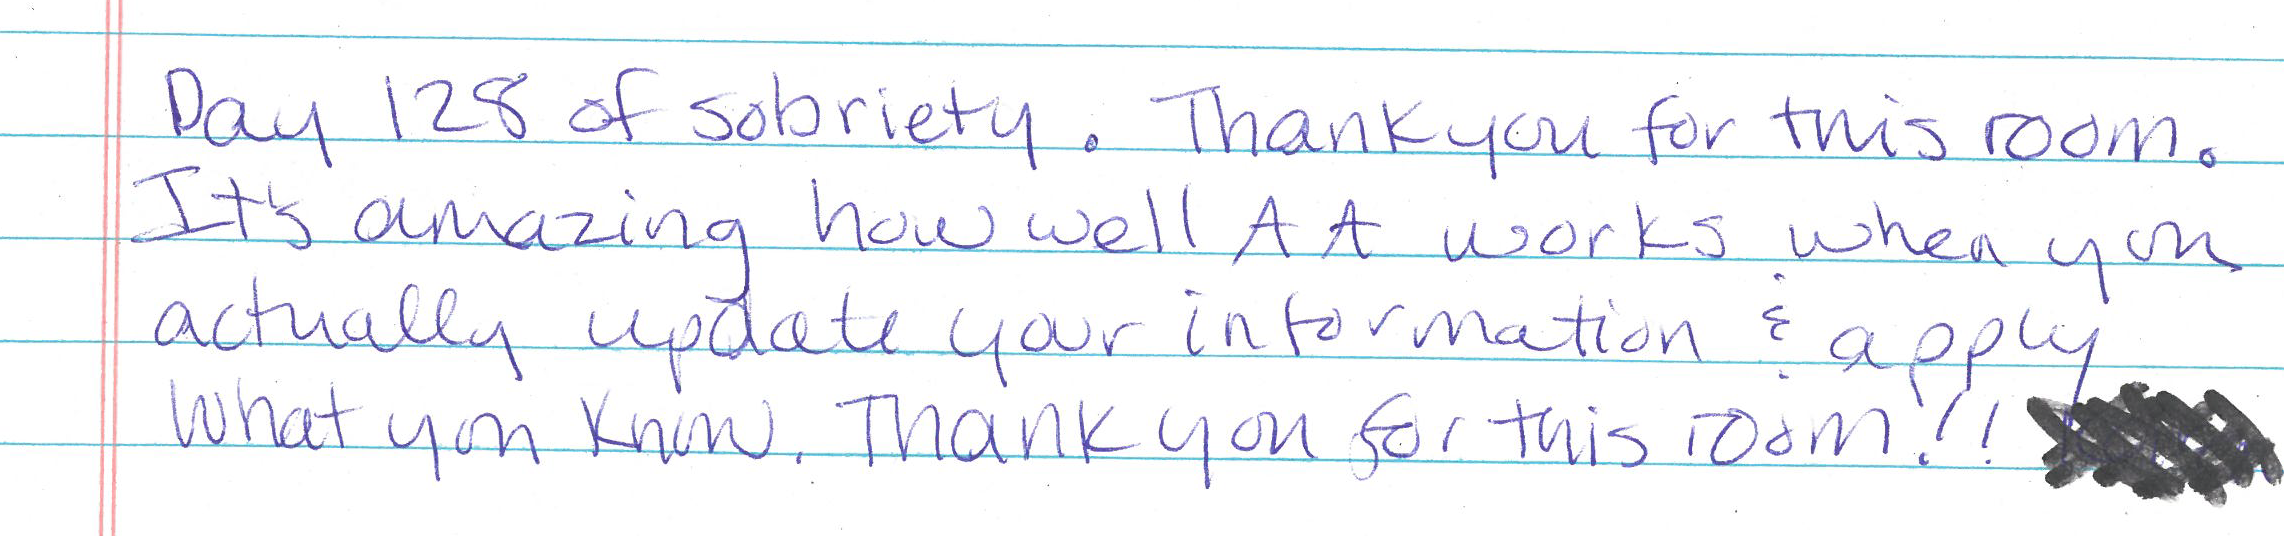 Day 128 of sobriety. Thank you for this room.
It's amazing how well AA works when you
actually update your information & apply
what you know. Thank you for this room!!